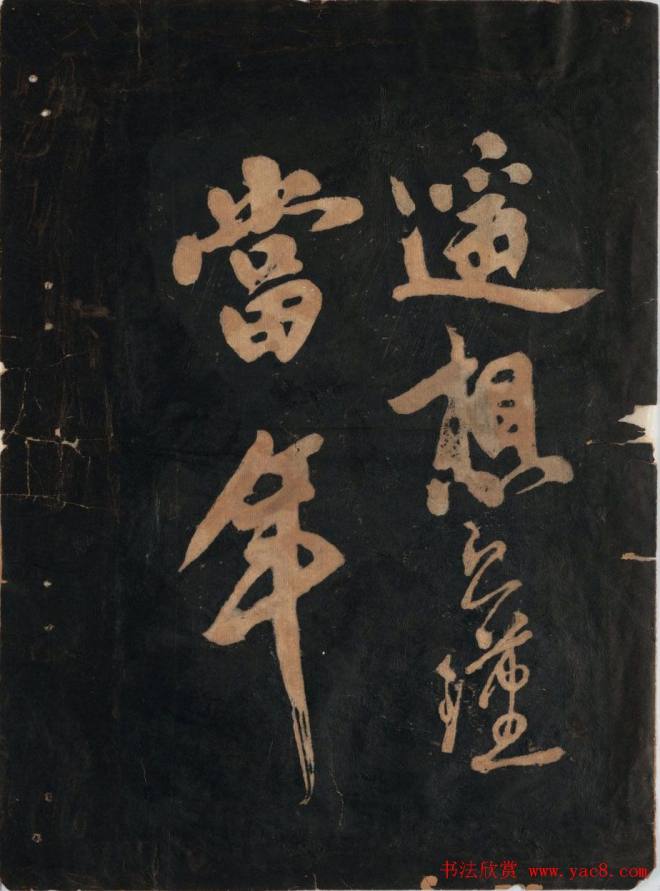 遥想公瑾
當年
书法欣赏 www.yac8.com